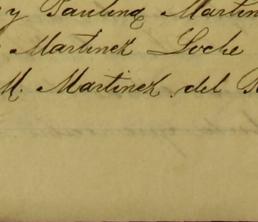 y Paulina Martin
Martinez Loche
M. Martinez del